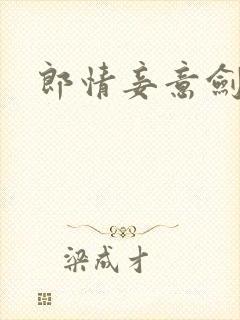 郎情妾意劍
梁成才